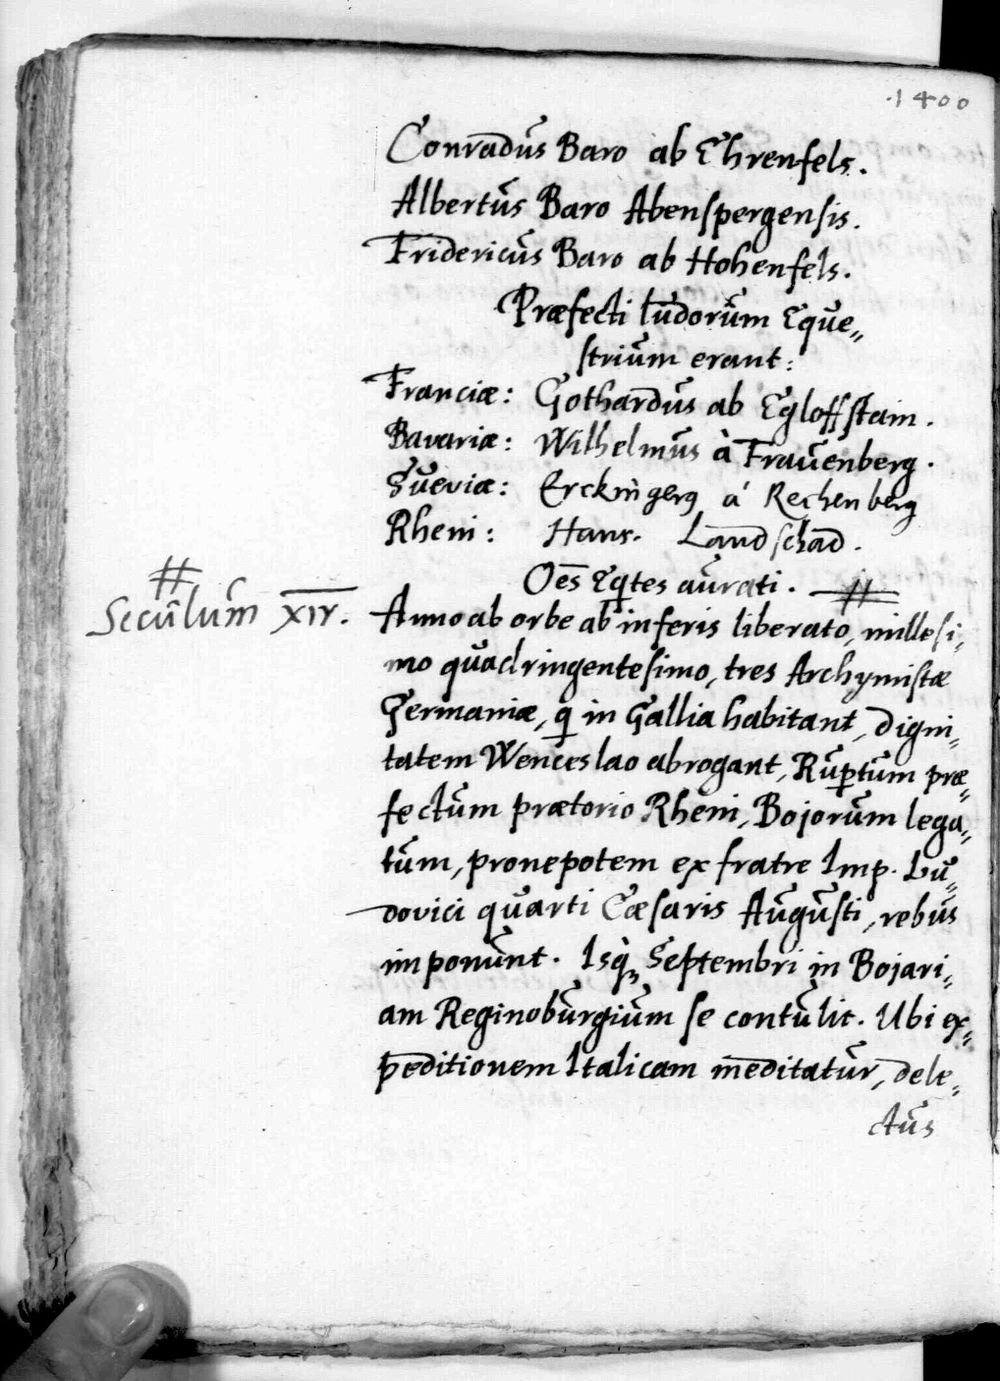 .1400
Conradus Baro ab Ehrenfels.
Albertus Baro Abenspergensis.
Fridericus Baro ab Hohenfels.
Præfecti ludorum Eque„
strium erant:
Franciæ: Gothardus ab Egloffstain.
Bavariæ: Wilhelmus à Frauenberg.
Sueviæ: Erckinger9 á Rechenberg
Rheni: Hans. Landschad.
Oēs Eq̄tes aurati. #
#
Seculum XIV.
Anno ab orbe ab inferis liberato, millesi„
mo quadringentesimo, tres Archymistæ
Germaniæ, q̃ in Gallia habitant, digni„
tatem Wenceslao abrogant, Rup̱tum præ„
fectum prætorio Rheni, Bojorum lega„
tum, pronepotem ex fratre Imp. Lu„
dovici quarti Cæsaris Augusti, rebus
imponunt. Isq̀₃ Septembri in Bojari„
am Reginoburgium se contulit. Ubi ex„
p̱editionem Italicam meditatur, dele„
ctus